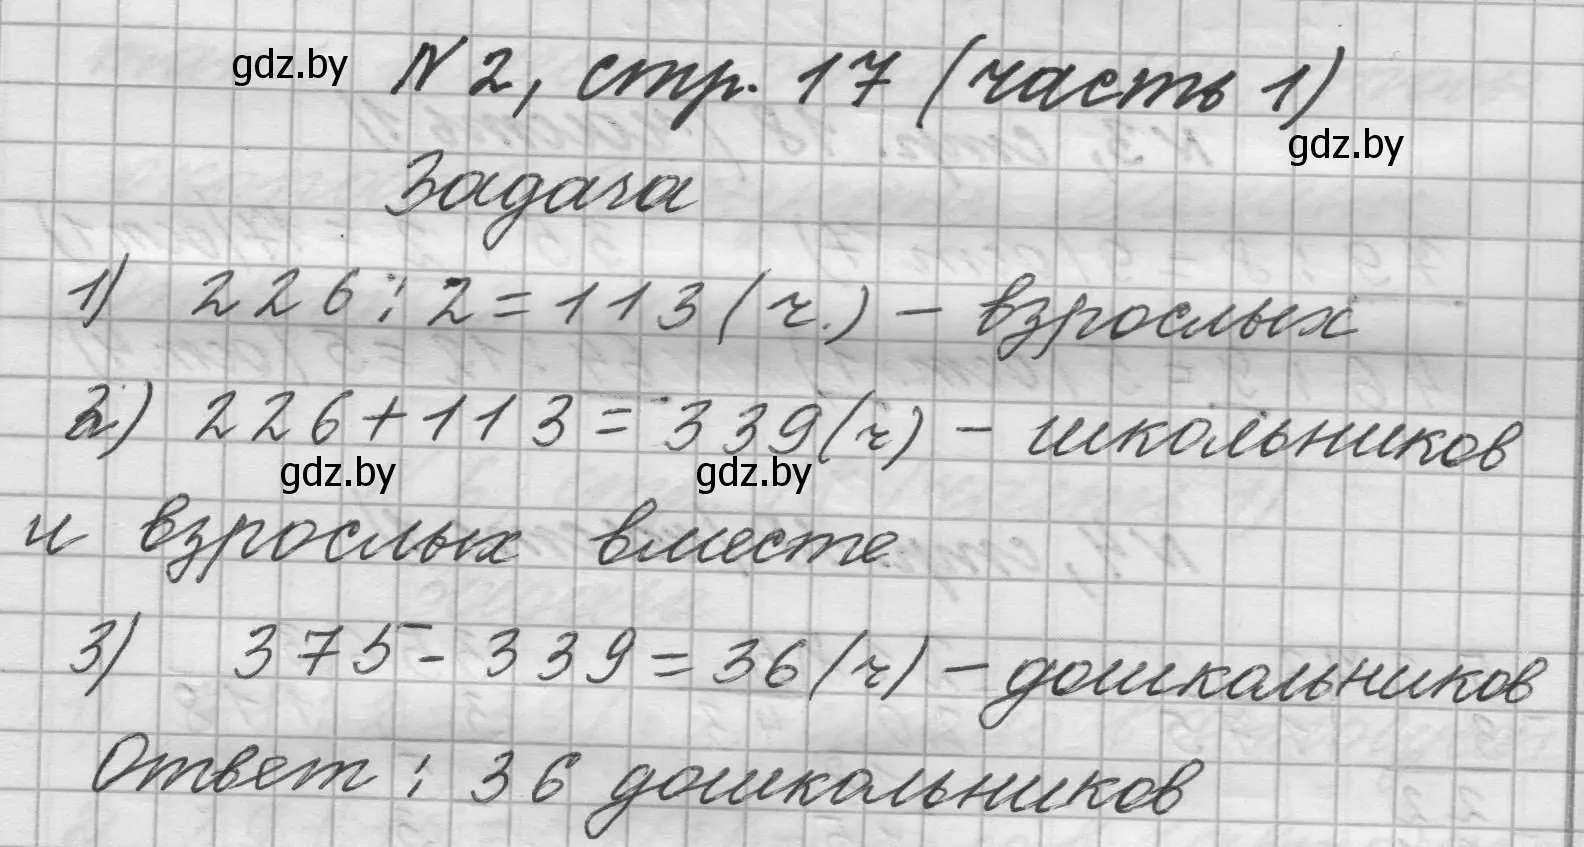 gdz.by № 2, стр. 17 (часть 1)
gdz.by
Задача
1) 226 : 2 = 113 (ч.) - взрослых
2) 226 + 113 = 339 (ч) - школьников
gdz.by gdz.by
и взрослых вместе
3) 375 - 339 = 36 (ч) - дошкольников
Ответ : 36 дошкольников